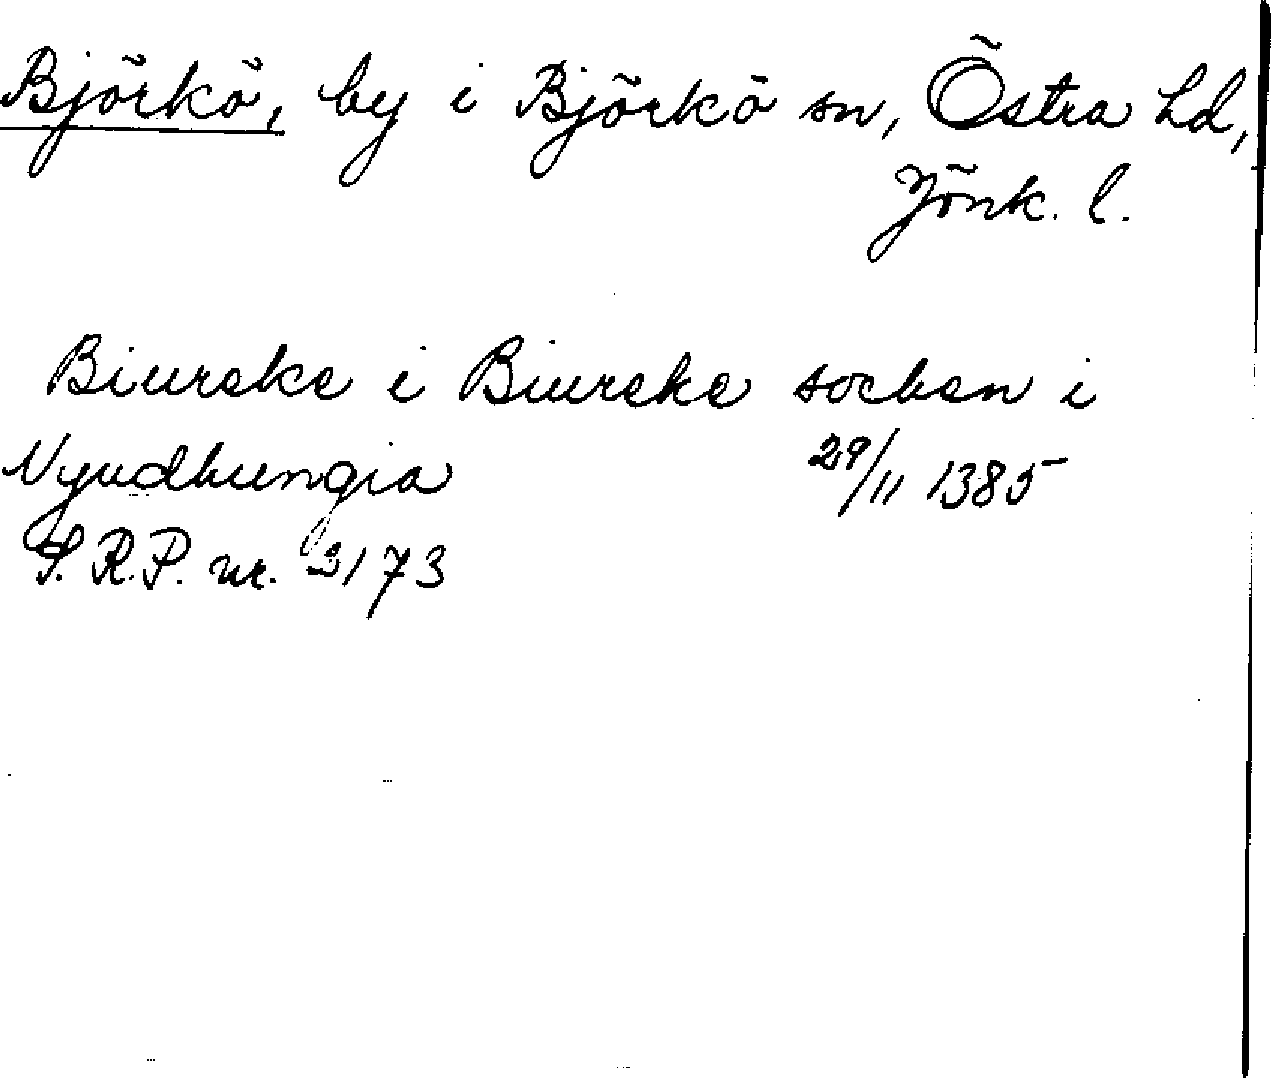 Björkö, by i Björkö sn, Östra hd,
Jönk. l.
Biureke i Biureke socken i
Nyudhungia 29/11 1385
S.R.P. nr. 2173